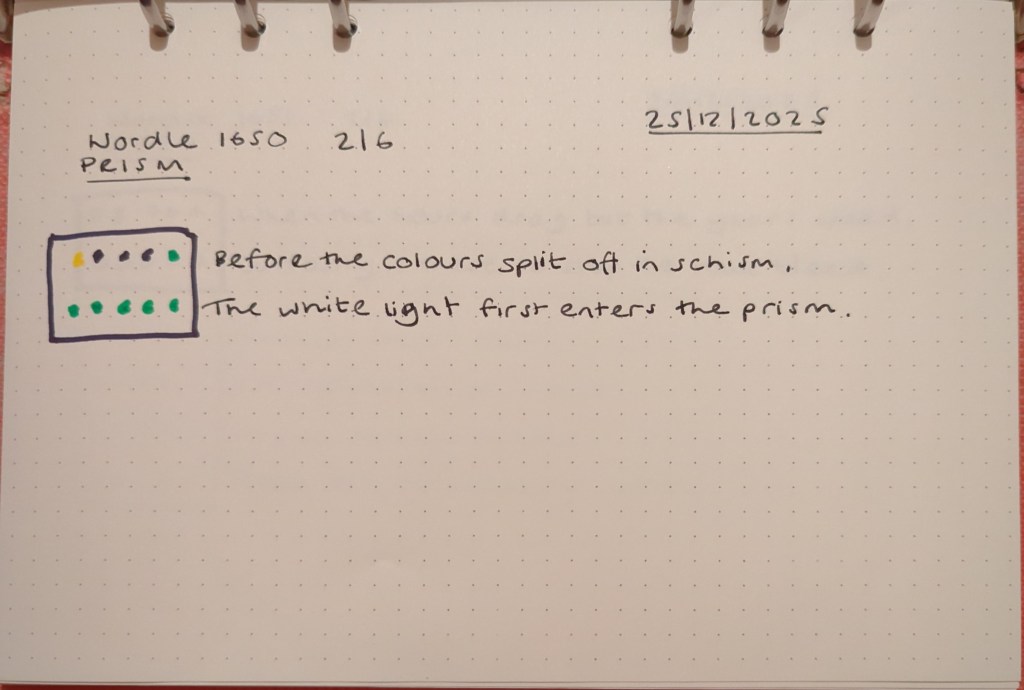 Wordle 1650 2/6
25/12/2025
PRISM
Before the colours split off in schism.
The white light first enters the prism.